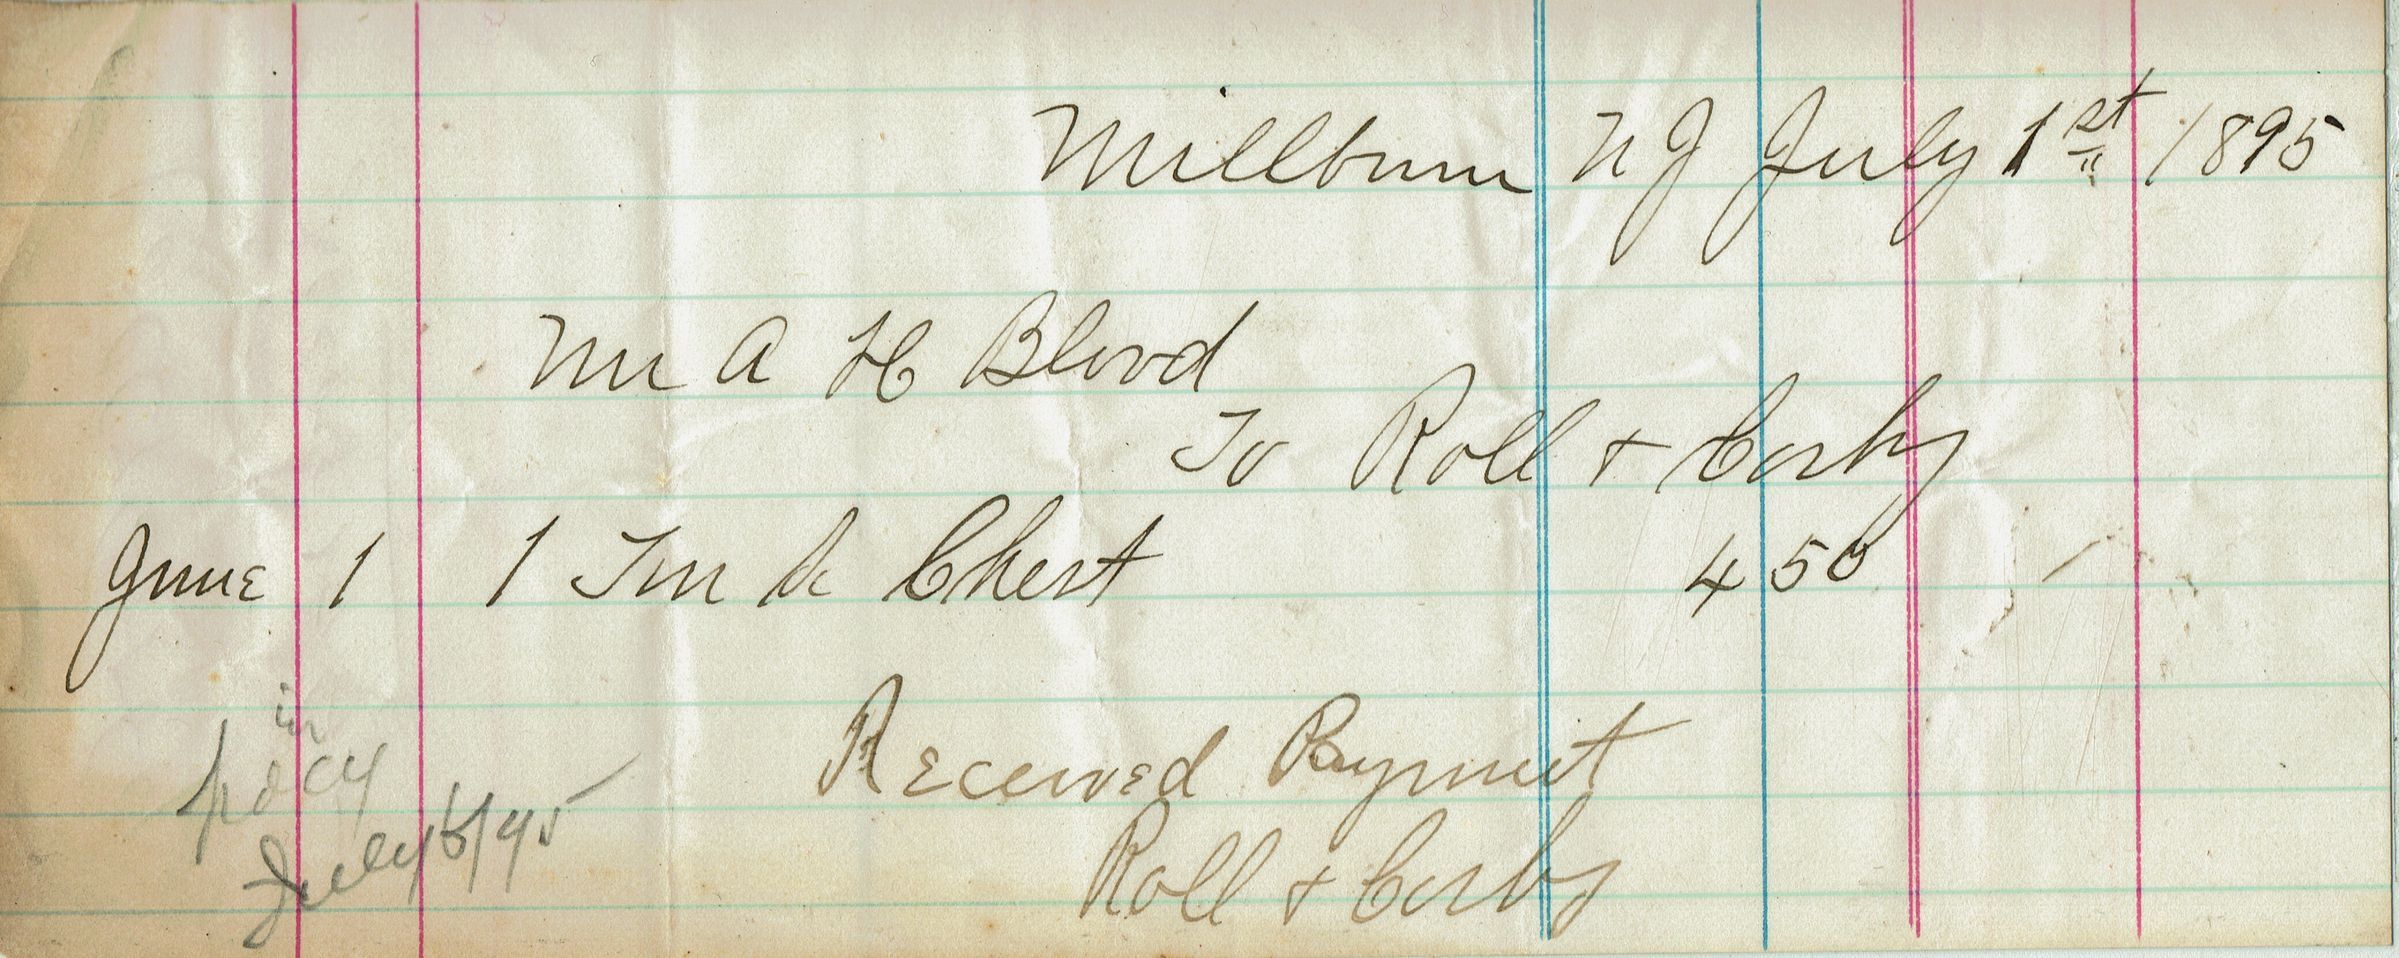 Millburn N J July 1st 1895
Mr A H Blood
To Roll + Corby
June 1 1 Chest 4 50
Received Payment
Roll + Corby
in
July 6/95